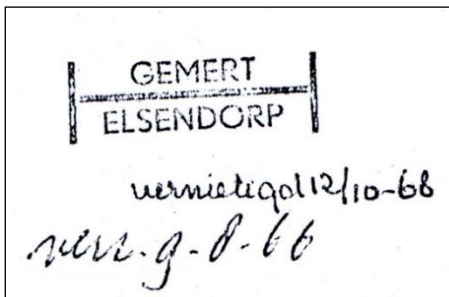 GEMERT
ELSENDORP
vernietigd 12/10-68
verz. 9-8-66